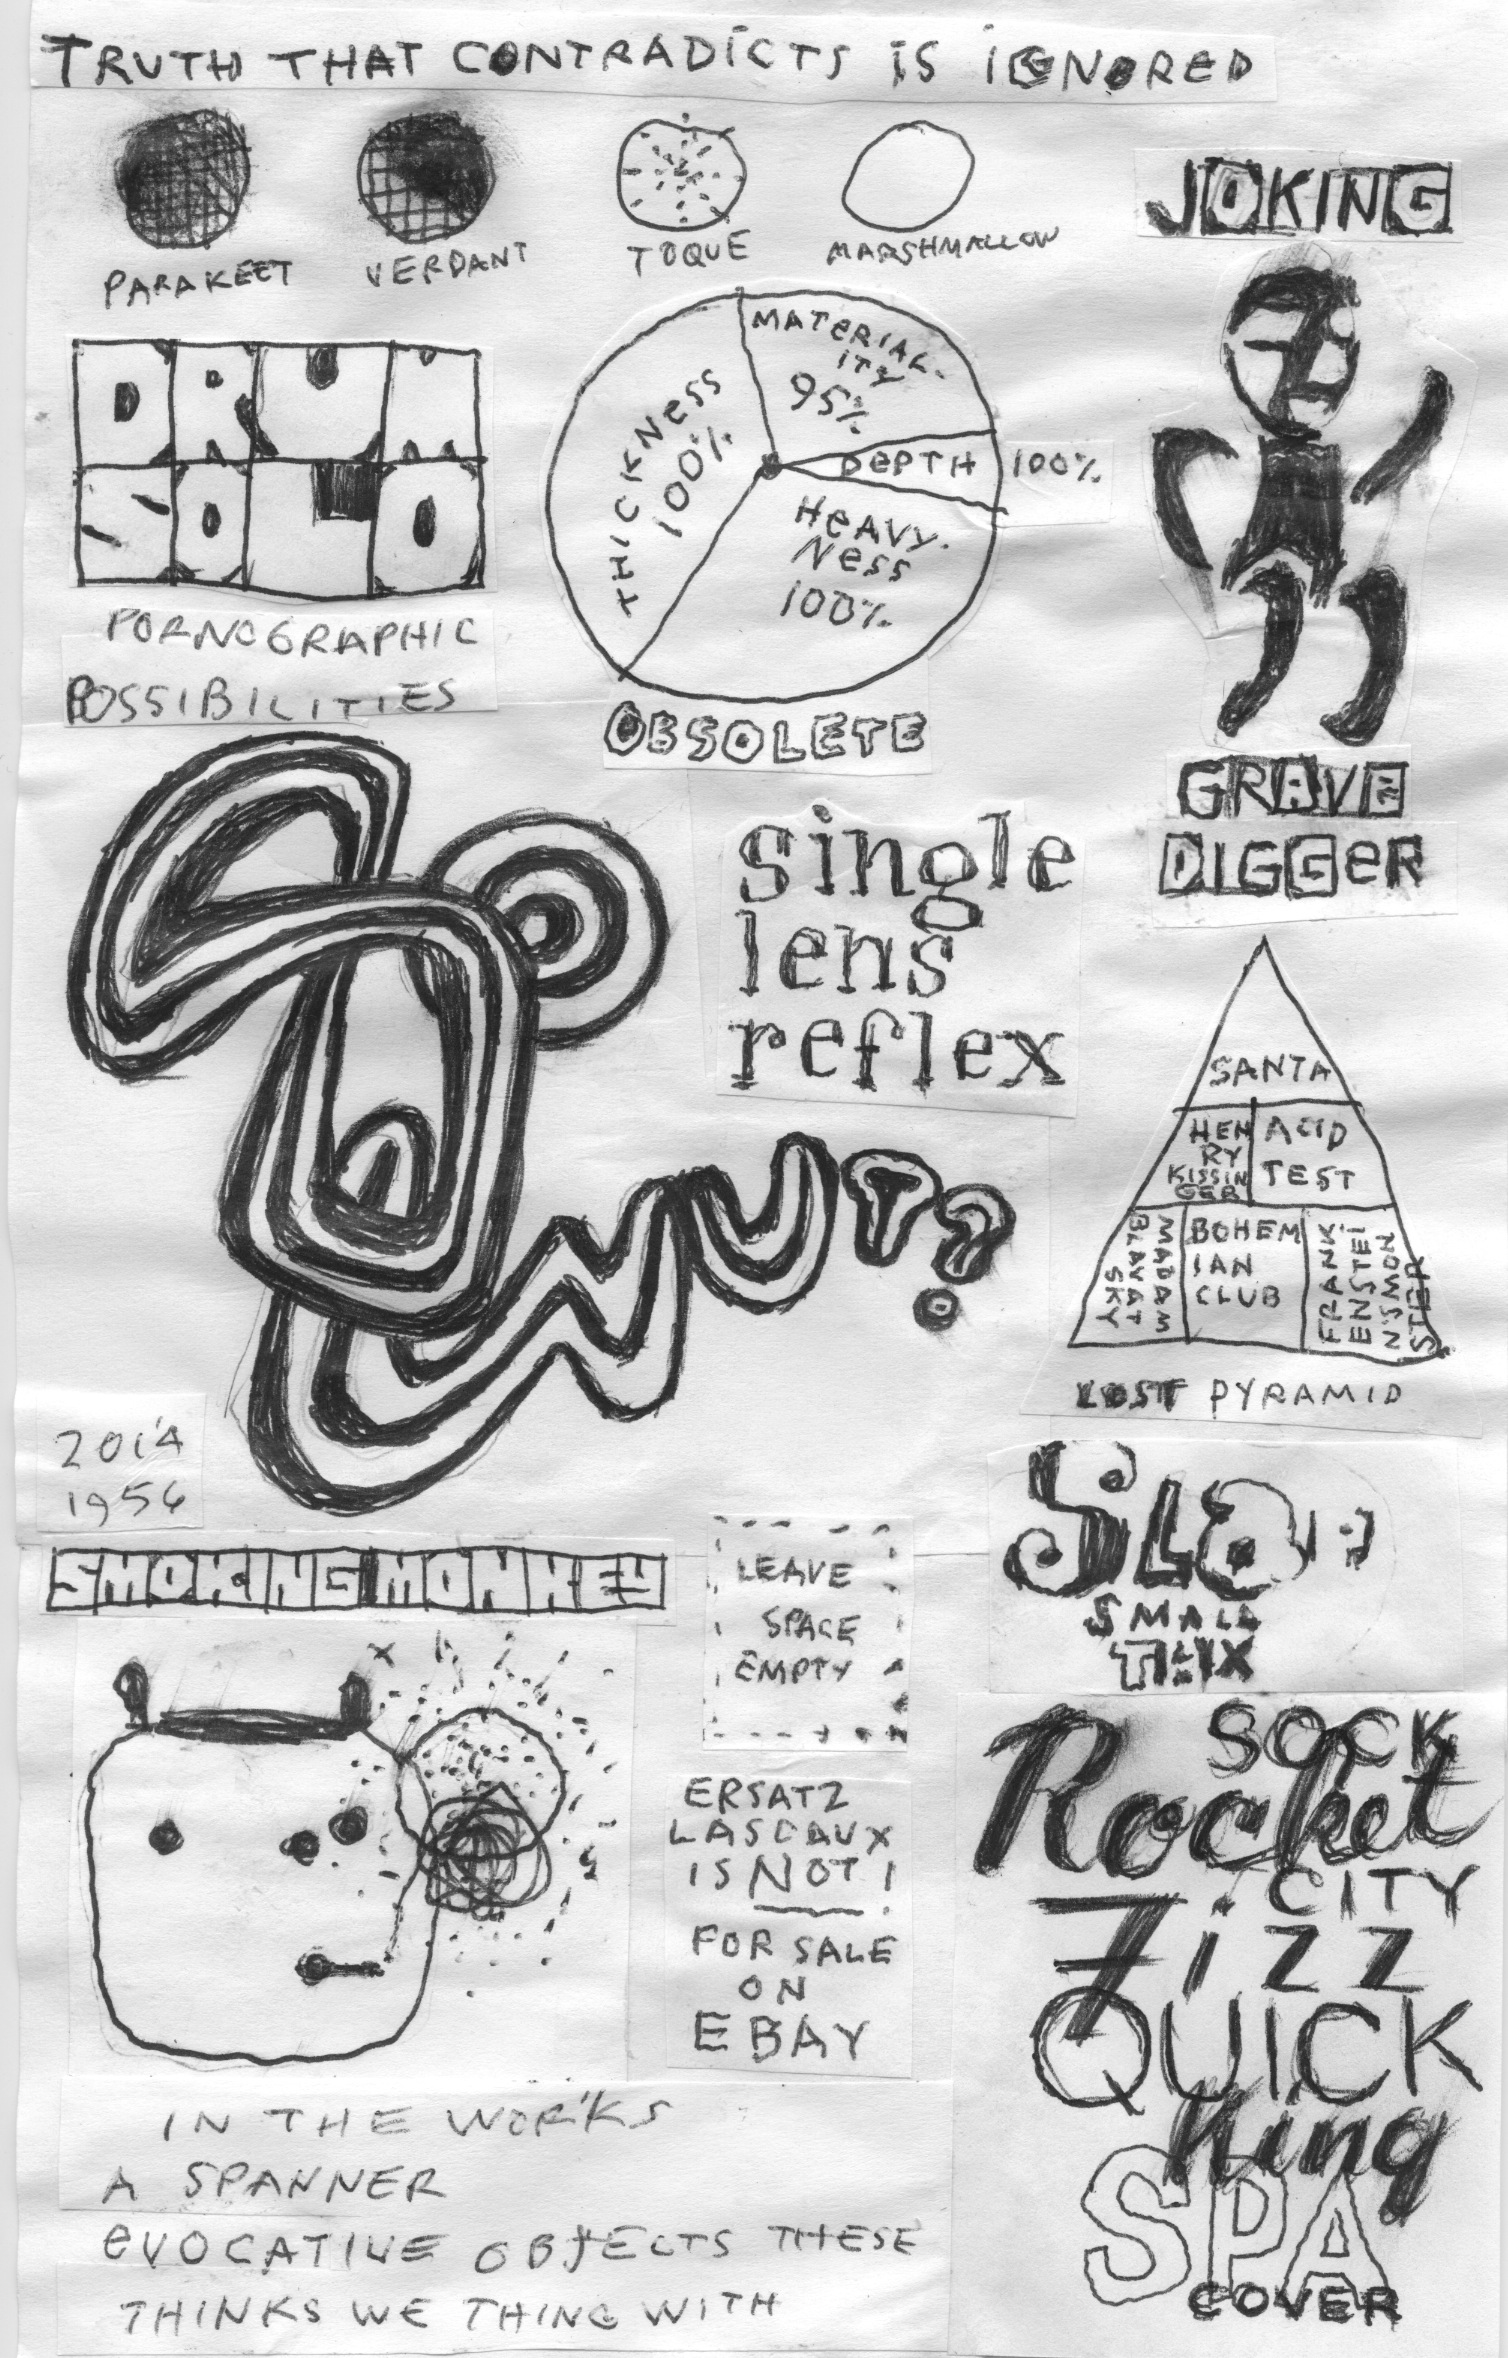 TRUTH THAT CONTRADICTS IS IGNORED
PARAKEET
VERDANT
TOQUE
MARSHMALLOW
JOKING
PORNOGRAPHIC
POSSIBILITIES
THICKNESS
100%
MATERIAL-
ITY
95%
DEPTH 100%
HEAVY-
NESS
100%
OBSOLETE
GRAVE
DIGGER
single
lens
reflex
WUT?
SANTA
HEN
RY
KISSIN
GER
ACID
TEST
MADAM
BLAVAT
SKY
BOHEM
IAN
CLUB
FRANK
ENSTEI
N'S MON
STER
LOST PYRAMID
2014
1956
SMOKING MONKEY
LEAVE
SPACE
EMPTY
SMALL
ERSATZ
LASCAUX
IS NOT!
FOR SALE
ON
EBAY
SOCK
Rocket
CITY
FIZZ
QUICK
King
SPA
COVER
IN THE WORKS
A SPANNER
EVOCATIVE OBJECTS THESE
THINKS WE THING WITH